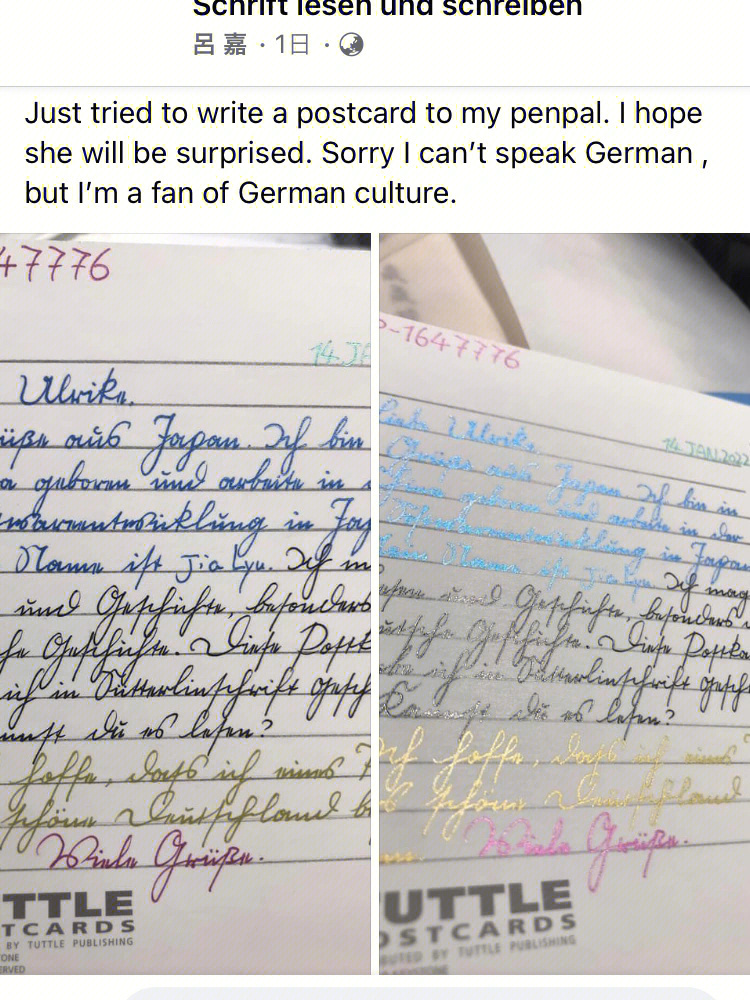 Schrift lesen und schreiben
呂 嘉 · 1日 ·
Just tried to write a postcard to my penpal. I hope
she will be surprised. Sorry I can't speak German ,
but I'm a fan of German culture.
47776
14.JA
Ulrike,
üße aus Japan. Ich bin
a geboren und arbeite in
warenentwicklung in Jap
Name ist Jia Lyu. Ich m
und Geschichte, besonders
he Geschichte. Diese Postk
ich in Sütterlinschrift gesch
nnst du es lesen?
hoffe, dass ich eines T
schöne Deutschland b
Viele Grüße.
TTLE
TCARDS
BY TUTTLE PUBLISHING
ONE
ERVED
-1647776
14.JAN2022
Liebe Ulrike,
Grüße aus Japan. Ich bin in
China geboren und arbeite in der
Softwareentwicklung in Japan
ein Name ist Jia Lyu. Ich mag
und Geschichte, besonders
utsche Geschichte. Diese Postka
be ich in Sütterlinschrift gesch
Kannst du es lesen?
Ich hoffe, dass ich eines T
s schöne Deutschland
Viele Grüße.
UTTLE
OSTCARDS
BUTED BY TUTTLE PUBLISHING